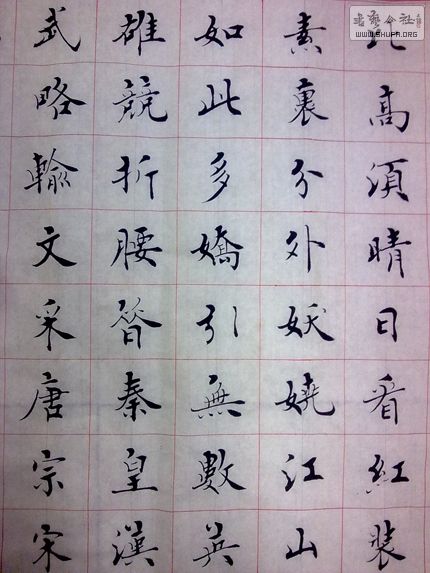 比高須晴日看紅裝
素裹分外妖嬈江山
如此多嬌引無數英
雄競折腰秦皇漢
武略輸文采唐宗宋
書藝公社
WWW.SHUFA.ORG